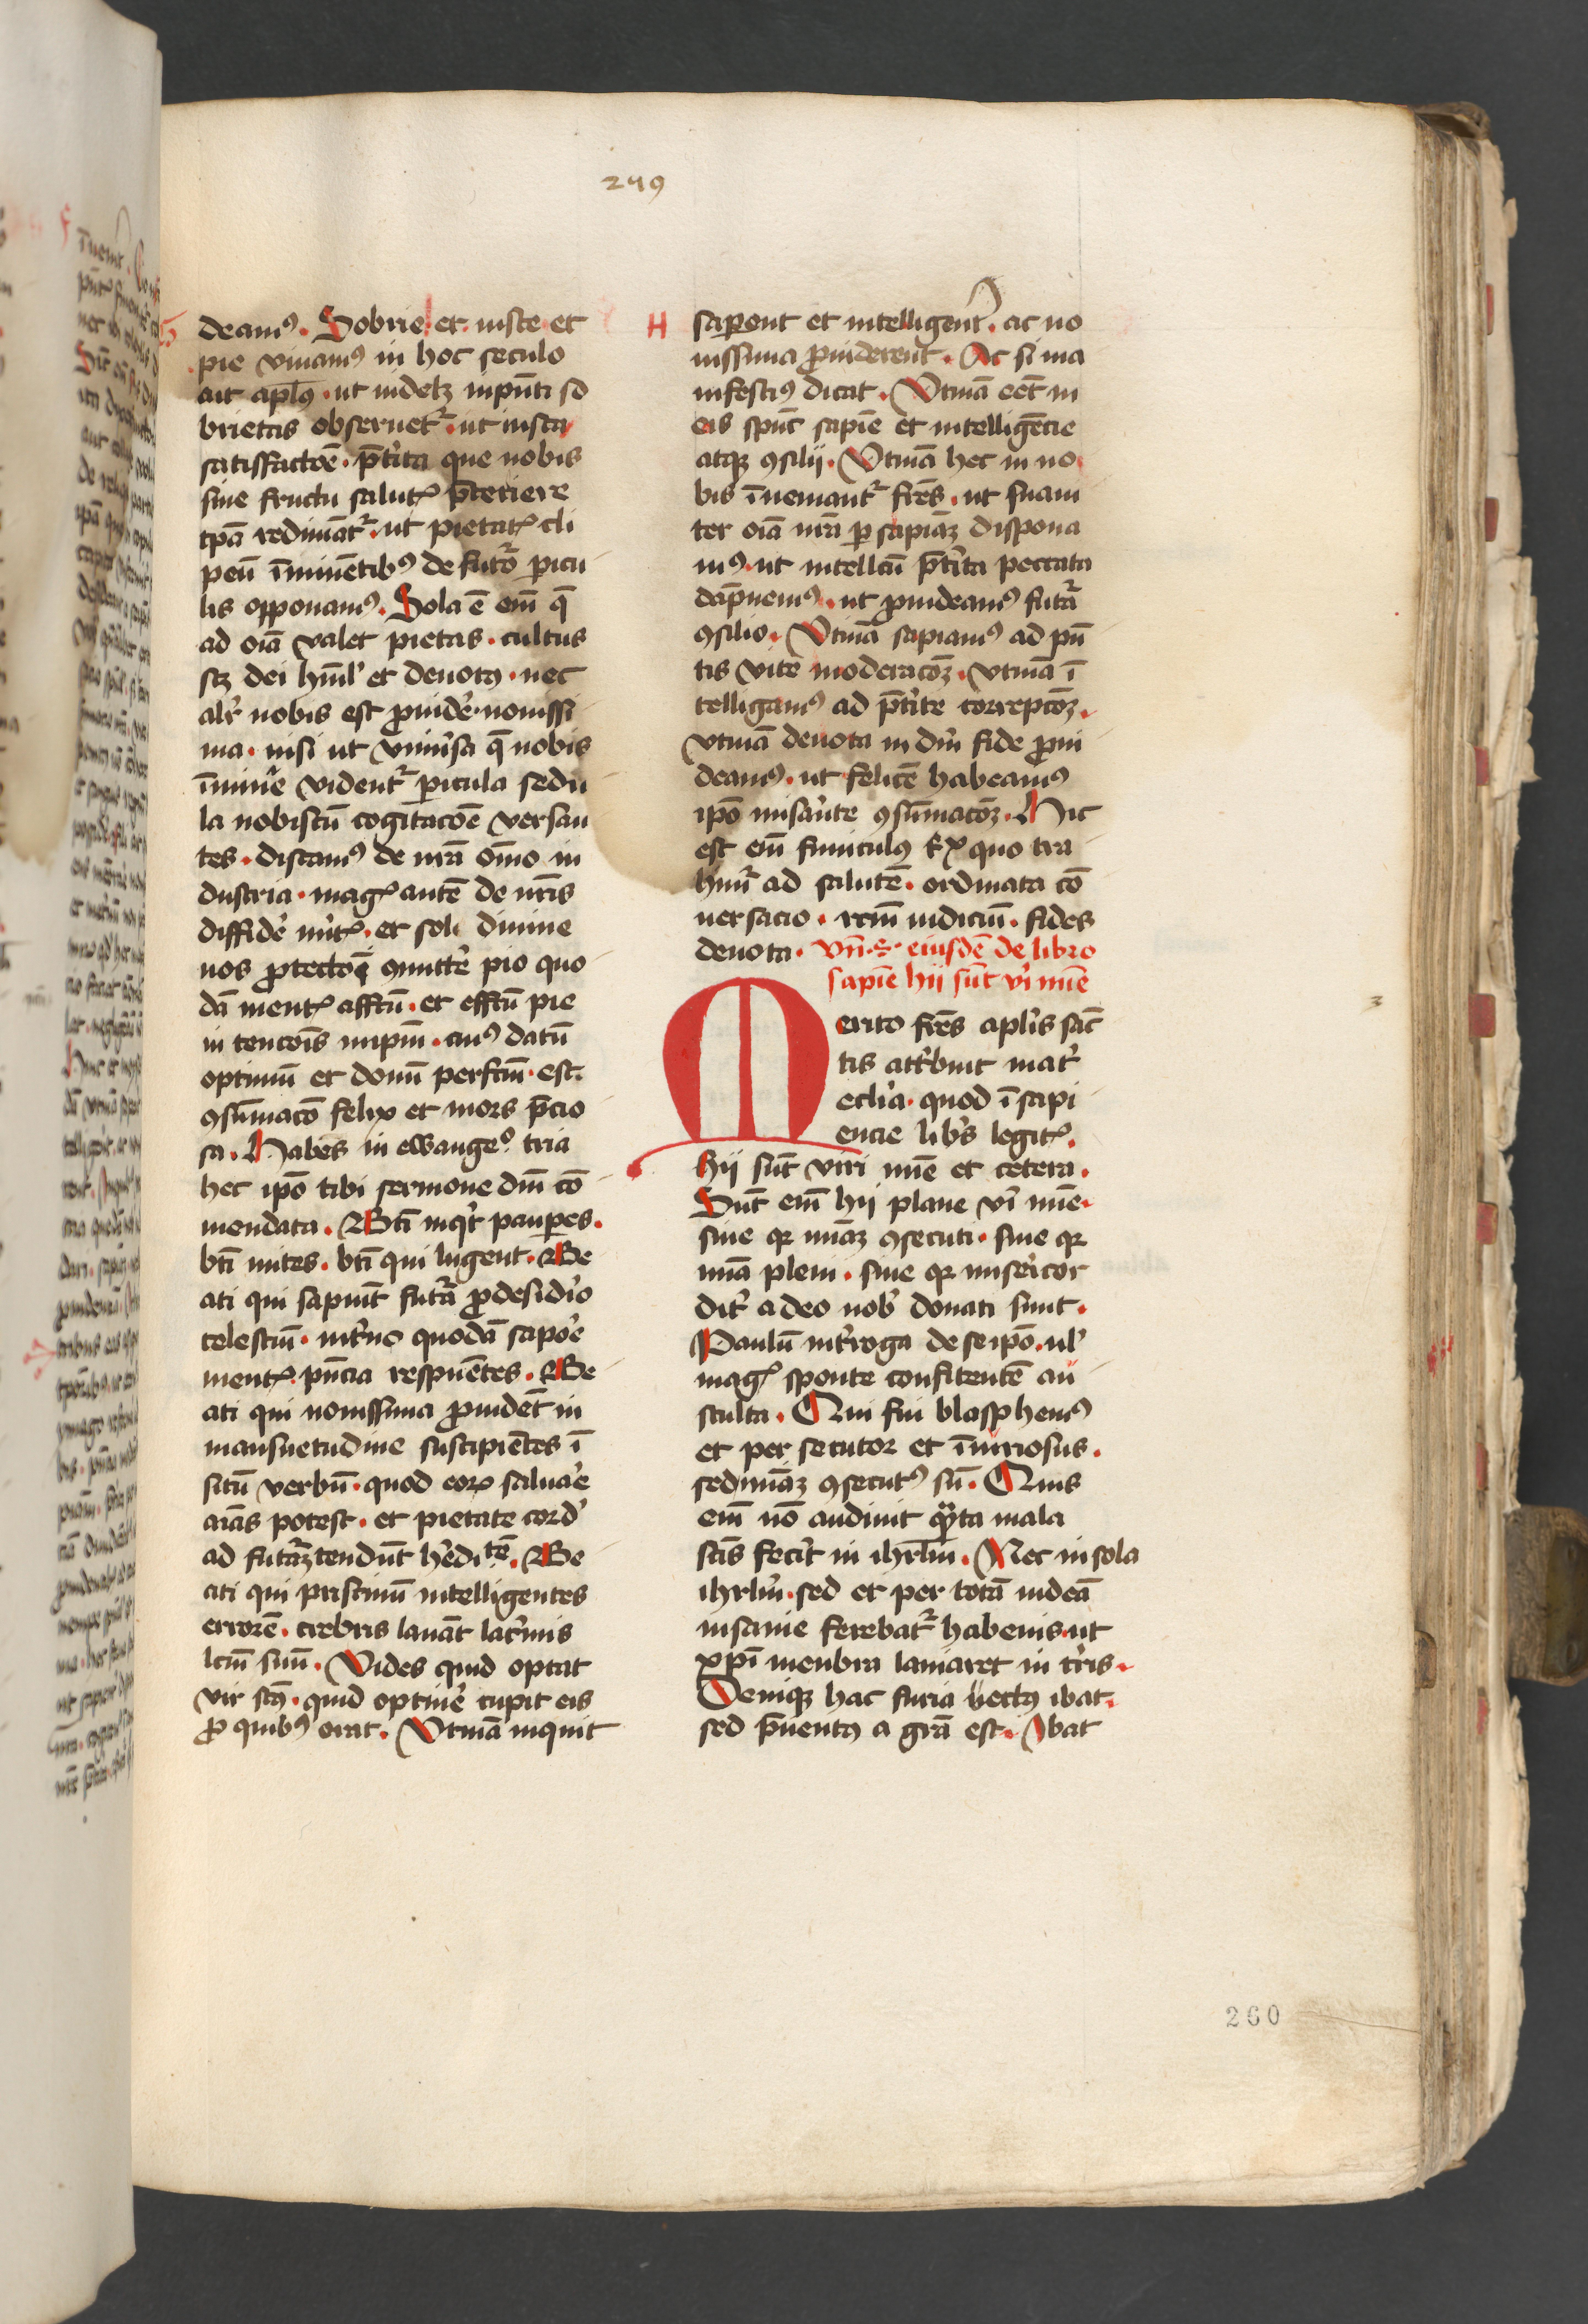 249
deamꝰ. Sobrie et iuste et
pie viuamꝰ in hoc seculo
ait apl̄us. ut videlꝫ in pn̄ti so
brietas obseruetᷣ. ut iusta
satisfactōe. p̄terita que nobis
sine fructu salutꝭ p̄teriere
tpā redimātᷣ. ut pietatꝭ cli
peū īminētibꝰ de futᷣo ꝑicu
lis opponamꝰ. Sola ē em̄ q̄
ad oīa valet pietas. cultus
scꝫ dei hūil' et deuotꝰ. nec
alr̄ nobis est ꝓuidē nouissi
ma. nisi ut vniu'sa q̄ nobis
īmine videntᷣ ꝑicula sedu
la nobiscū cogitacōe versan
tes. discamꝰ de nrā om̄o in
dustria. magꝭ autē de nr̄is
diffidē mitꝭ. et soli diuine
nos ꝓtectōi ꝯmittē pio quo
dā mentꝭ affc̄u. et effc̄u pie
in tencōis nupm̄. cuiꝰ datū
optimū et donū perfcm̄ est.
ꝯsūmacō felix et mors p̄cio
sa. Habes in ewangeº tria
hec ipō tibi sermone dn̄i cō
mendata. Bt̄i inqt pauꝑes.
bt̄i mites. bt̄i qui lugent. Be
ati qui sapiūt futᷣa ꝓ desidīo
celestiū. int'no quodā sapore
mentꝭ pn̄cia respuētes. Be
ati qui nouissima ꝓuidēt in
mansuetudine suscipiētes ī
sitū verbū. quod eoꝝ saluare
aīas potest. et pietate cord'
ad futᷣaꝫ tendūt h'editē. Be
ati qui pristinū intelligentes
errorē. crebris lauāt lac'mis
lc̄m suū. Vides quid optat
vir scūs. quid optine cupit eis
ꝓ quibꝰ orat. Vtinā inquit
H
saꝑent et intelligent. ac no
uissima ꝓuiderent. Ac si ma
nifestiꝰ dicat. Vtinā eēt in
eis spūc sapīe et intelligēcie
atqꝫ ꝯsilij. Vtinā hec in no
bis īueniantᷣ frēs. ut suaui
ter oīa nrā ꝑ sapiāꝫ dispona
mꝰ. ut intellcū p̄t'ita peccata
dāpnemꝰ. ut ꝓuideamꝰ futᷣa
ꝯsilio. Vtinā sapiamꝰ ad pn̄
tis vite moderacōꝫ. vtinā ī
telligamꝰ ad p̄t'ite correpcōꝫ.
vtinā deuota in dn̄i fide ꝓui
deamꝰ. ut felicē habeamꝰ
ipō misan̄te ꝯsūmacōꝫ. Hic
est em̄ funiculꝰ tᷣpx quo tra
himᷣ ad salutē. ordinata cō
uersacio. rcm̄ iudiciū. fides
deuota. Vn̄. eiusdē de libro
sapīe hij sūt vi'i mīe
Merito frēs apl̄is sāc
tis att'buit mat'
ecl'ia. quod ī sapi
encie lib's legitᷣ.
hij sūt viri mīe et cetera.
Sūt em̄ hij plane vi'i mīe.
siue qꝛ mīaꝫ ꝯsecuti. siue qꝛ
mīa pleni. siue qꝛ misericor
dit' a deo nob' donati sunt.
Paulū int'roga de se ipō. ul'
magꝭ sponte confitentē au
sculta. Qui fui blasphemꝰ
et per secutor et īiuriosus.
sed mīaꝫ ꝯsecutꝰ sū. Quis
em̄ nō audiuit qᵃnta mala
scīs fecit in ihrl̄m. Nec in sola
ihrl̄m. sed et per totā iudeā
insanie ferebatᷣ habenis. ut
xp̄i menbra laniaret in t'ris.
Deniqꝫ hac furia uectꝰ ibat.
sed p̄uentꝰ a grā est. Ibat
260